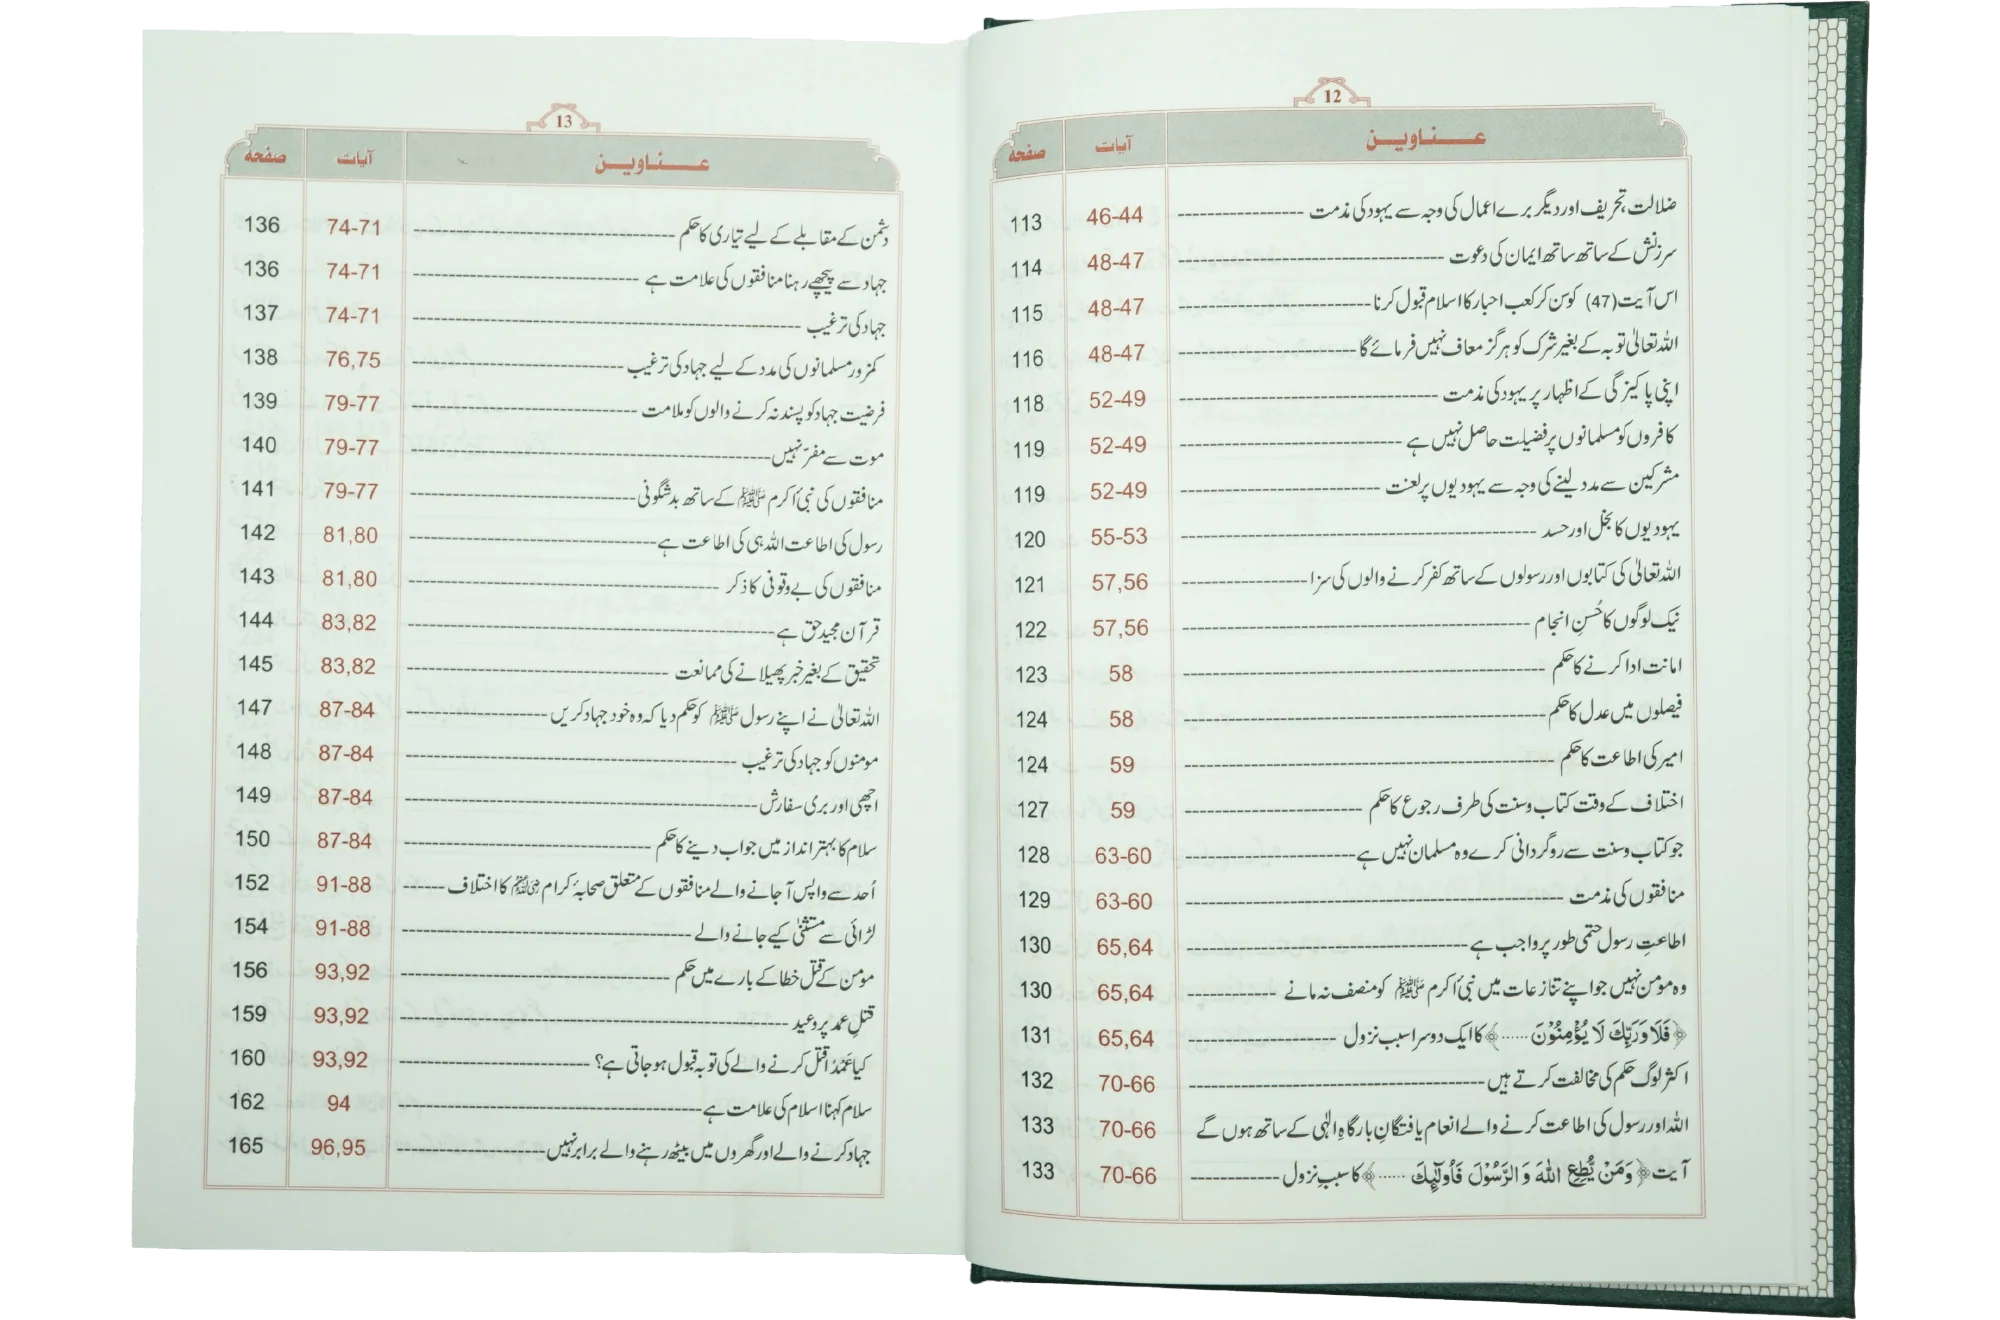 12
عناوین آیات صفحہ
ضلالت، تحریف اور دیگر برے اعمال کی وجہ سے یہود کی مذمت 46-44 113
سرزنش کے ساتھ ساتھ ایمان کی دعوت 48-47 114
اس آیت (47) کو سن کر کعب احبار کا اسلام قبول کرنا 48-47 115
اللہ تعالیٰ توبہ کے بغیر شرک کو ہرگز معاف نہیں فرمائے گا 48-47 116
اپنی پاکیزگی کے اظہار پر یہود کی مذمت 52-49 118
کافروں کو مسلمانوں پر فضیلت حاصل نہیں ہے 52-49 119
مشرکین سے مدد لینے کی وجہ سے یہودیوں پر لعنت 52-49 119
یہودیوں کا بخل اور حسد 55-53 120
اللہ تعالیٰ کی کتابوں اور رسولوں کے ساتھ کفر کرنے والوں کی سزا 57,56 121
نیک لوگوں کا حُسنِ انجام 57,56 122
امانت ادا کرنے کا حکم 58 123
فیصلوں میں عدل کا حکم 58 124
امیر کی اطاعت کا حکم 59 124
اختلاف کے وقت کتاب و سنت کی طرف رجوع کا حکم 59 127
جو کتاب و سنت سے روگردانی کرے وہ مسلمان نہیں ہے 63-60 128
منافقوں کی مذمت 63-60 129
اطاعتِ رسول حتمی طور پر واجب ہے 65,64 130
وہ مومن نہیں جو اپنے تنازعات میں نبیٔ اکرم ﷺ کو منصف نہ مانے 65,64 130
﴿فَلَا وَرَبِّكَ لَا يُؤْمِنُوْنَ ......﴾ کا ایک دوسرا سبب نزول 65,64 131
اکثر لوگ حکم کی مخالفت کرتے ہیں 70-66 132
اللہ اور رسول کی اطاعت کرنے والے انعام یافتگانِ بارگاہِ الٰہی کے ساتھ ہوں گے 70-66 133
آیت ﴿وَمَنْ يُّطِعِ اللّٰهَ وَ الرَّسُوْلَ فَاُولٰٓئِكَ ......﴾ کا سببِ نزول 70-66 133
13
عناوین آیات صفحہ
دشمن کے مقابلے کے لیے تیاری کا حکم 74-71 136
جہاد سے پیچھے رہنا منافقوں کی علامت ہے 74-71 136
جہاد کی ترغیب 74-71 137
کمزور مسلمانوں کی مدد کے لیے جہاد کی ترغیب 76,75 138
فرضیت جہاد کو پسند نہ کرنے والوں کو ملامت 79-77 139
موت سے مفرّ نہیں 79-77 140
منافقوں کی نبیٔ اکرم ﷺ کے ساتھ بدشگونی 79-77 141
رسول کی اطاعت اللہ ہی کی اطاعت ہے 81,80 142
منافقوں کی بے وقوفی کا ذکر 81,80 143
قرآن مجید حق ہے 83,82 144
تحقیق کے بغیر خبر پھیلانے کی ممانعت 83,82 145
اللہ تعالیٰ نے اپنے رسول ﷺ کو حکم دیا کہ وہ خود جہاد کریں 87-84 147
مومنوں کو جہاد کی ترغیب 87-84 148
اچھی اور بری سفارش 87-84 149
سلام کا بہتر انداز میں جواب دینے کا حکم 87-84 150
اُحد سے واپس آ جانے والے منافقوں کے متعلق صحابۂ کرام کا اختلاف 91-88 152
لڑائی سے مستثنیٰ کیے جانے والے 91-88 154
مومن کے قتل خطا کے بارے میں حکم 93,92 156
قتلِ عمد پر وعید 93,92 159
کیا عَمْدًا قتل کرنے والے کی توبہ قبول ہو جاتی ہے؟ 93,92 160
سلام کہنا اسلام کی علامت ہے 94 162
جہاد کرنے والے اور گھروں میں بیٹھ رہنے والے برابر نہیں 96,95 165